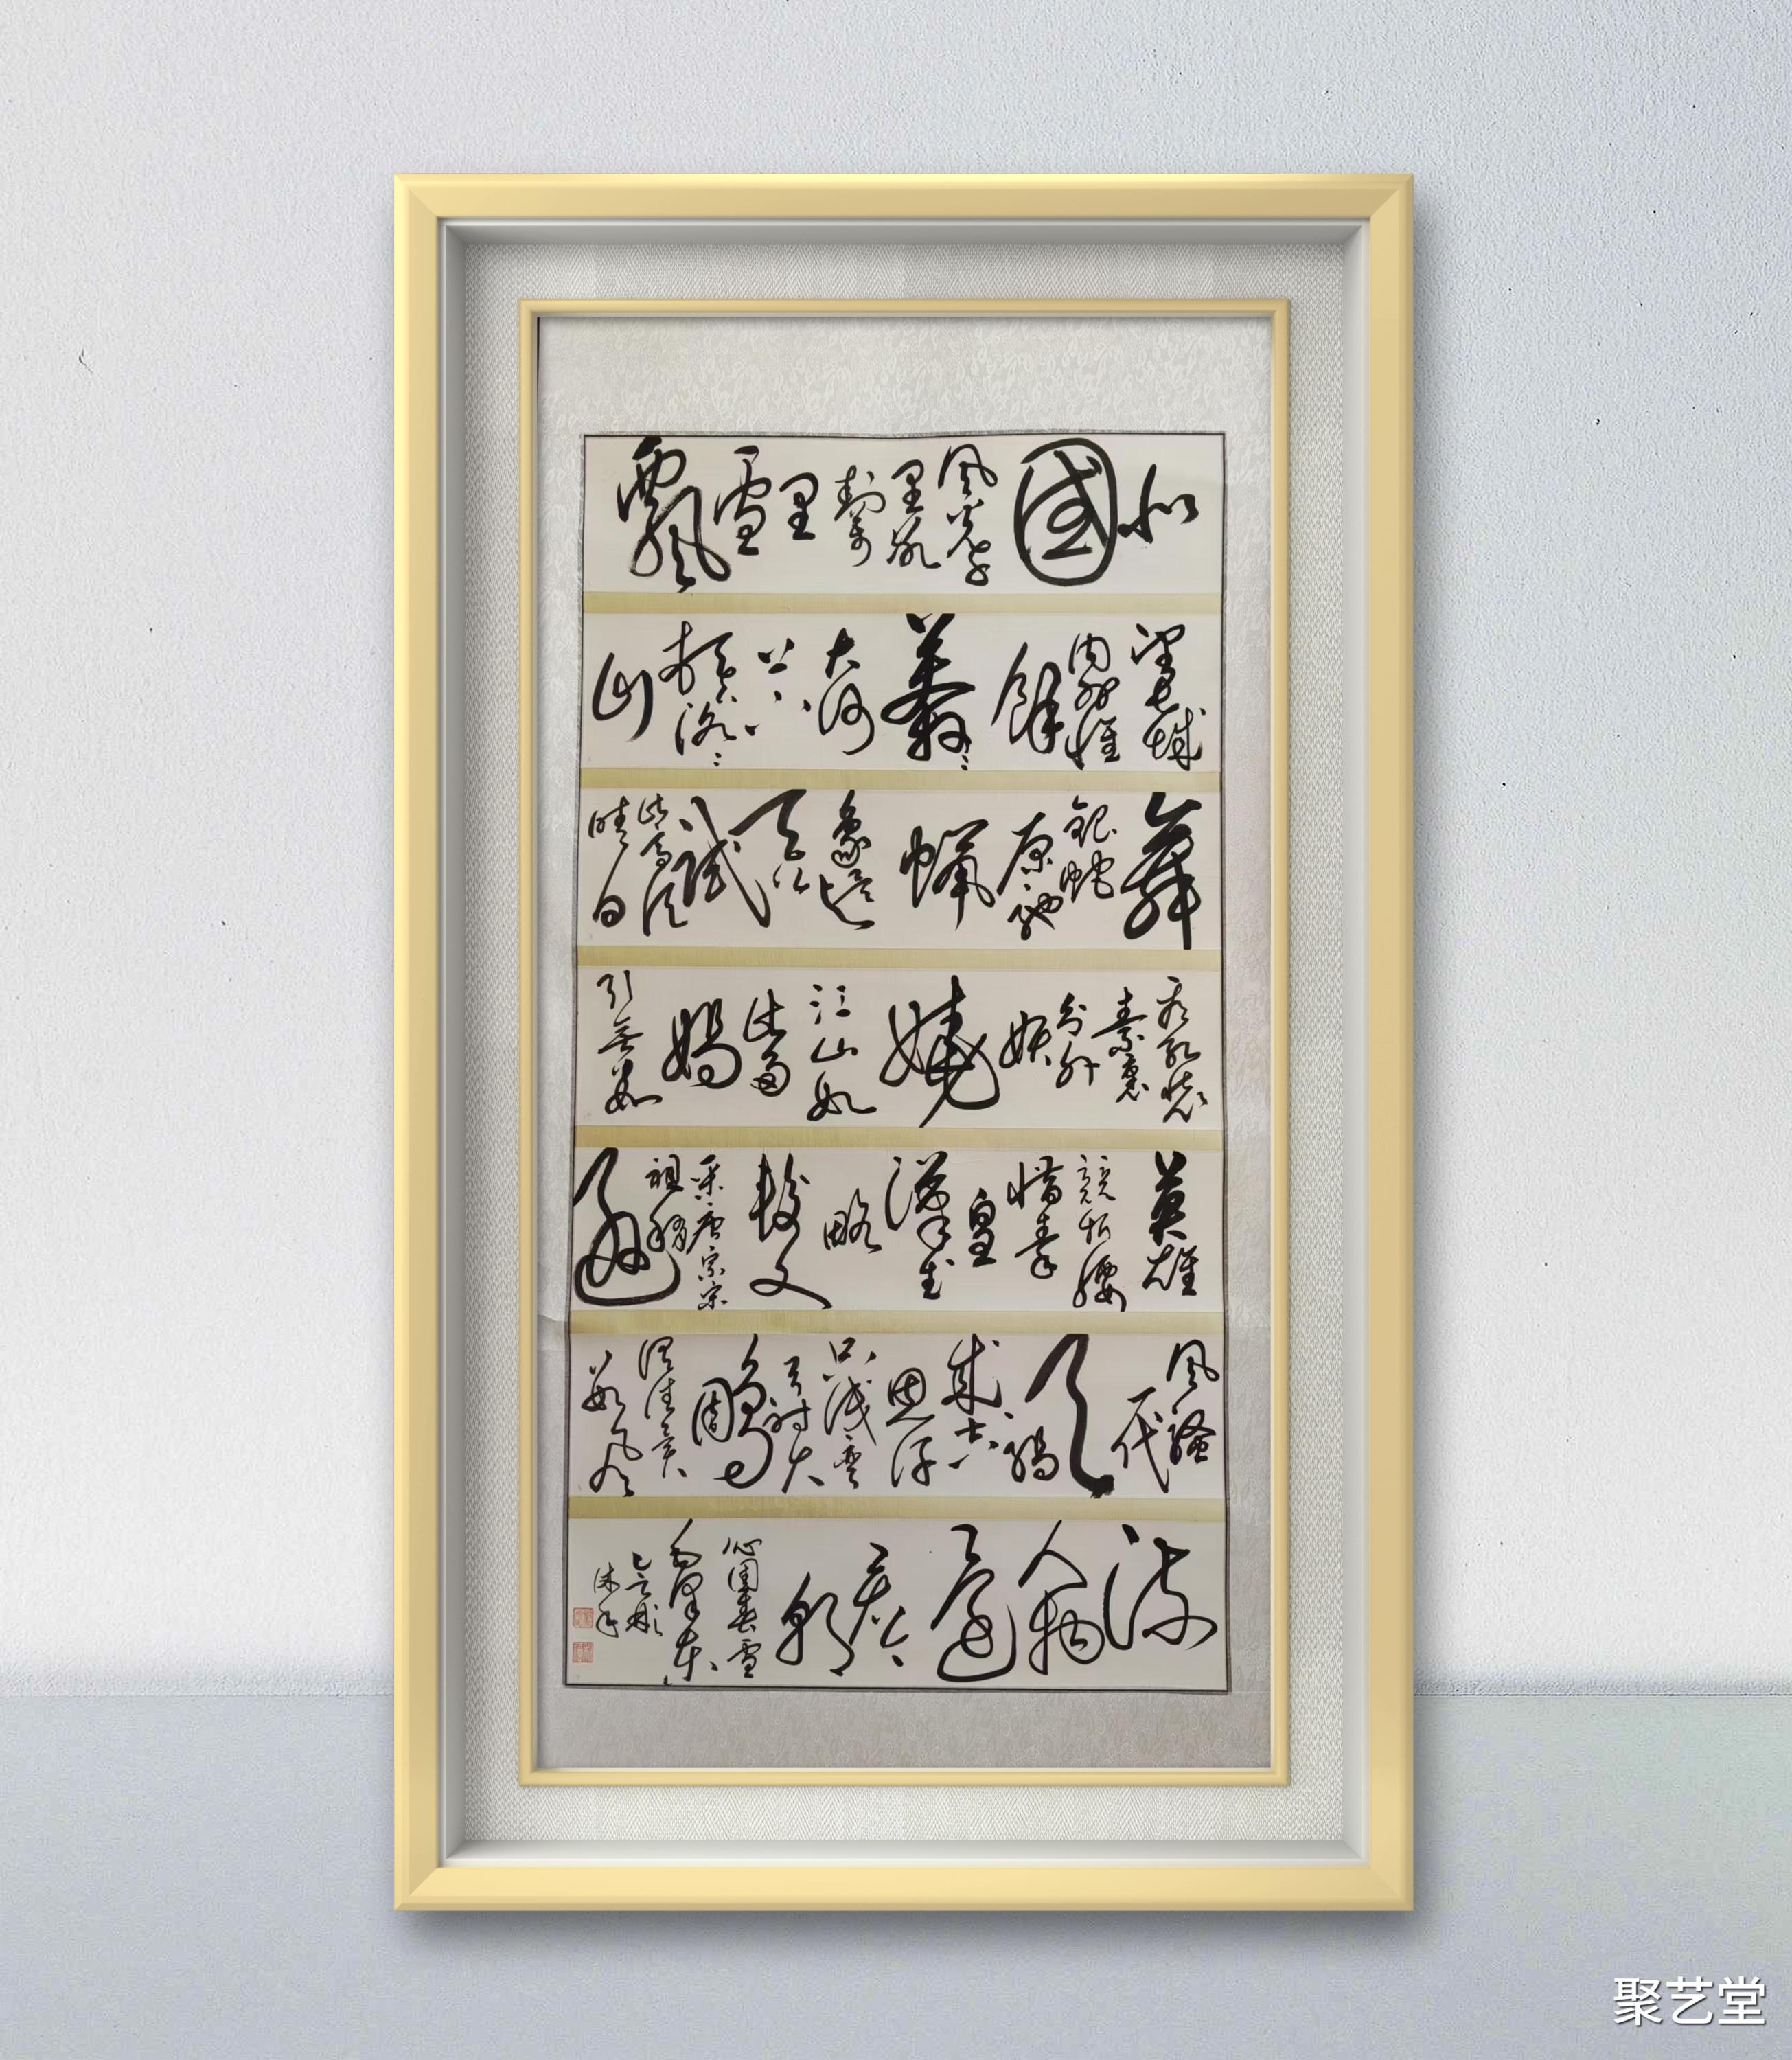 北國風光千里冰封萬里雪飄
望長城內外惟餘莽莽大河上下頓失滔滔山
舞銀蛇原馳蠟象欲與天公試比高須晴日
看紅裝素裹分外妖嬈江山如此多嬌引無數
英雄競折腰惜秦皇漢武略輸文采唐宗宋祖稍遜
風騷一代天驕成吉思汗只識彎弓射大鵰俱往矣數風
流人物還看今朝沁園春雪毛澤東
聚艺堂